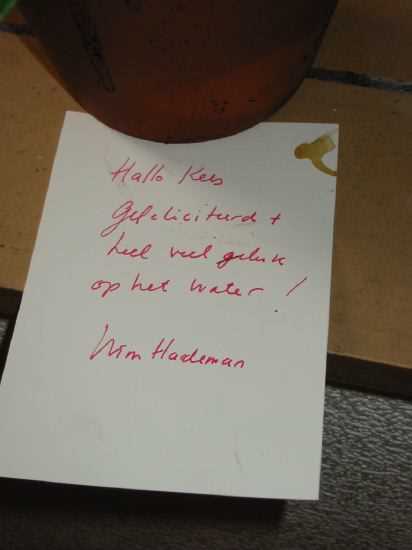 Hallo Kees
Gefeliciteerd +
heel veel geluk
op het water !
Wim Hademan